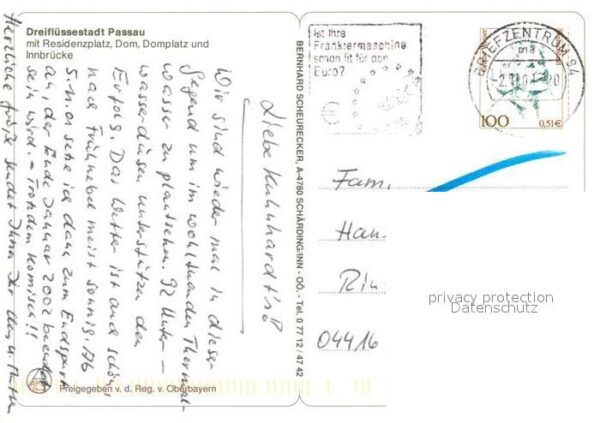 Dreiflüssestadt Passau
mit Residenzplatz, Dom, Domplatz und
Innbrücke
Liebe Kuhnhardt's!
Wir sind wieder mal in dieser
Gegend um im wohltuenden Thermal-
wasser zu plantschen. 92 Unter-
wasserdüsen unterstützen den
Erfolg! Das Wetter ist auch schön,
nach Frühnebel meist sonnig. Ab
5.11.01 gehe ich dann zum Endspurt
an, der Ende Januar 2002 beendet
sein wird. – Trotzdem komisch!!
Herzliche Grüße sendet Ihnen Ihr
Freigegeben v. d. Reg. v. Oberbayern
BERNHARD SCHEURECKER, A-4780 SCHÄRDING/INN - OÖ. - Tel. 0 77 12 / 47 42
Ist Ihre
Frankiermaschine
schon fit für den
Euro?
BRIEFZENTRUM 94
ma
100
0,51€
Fam.
Han
Rin
04416
privacy protection
Datenschutz